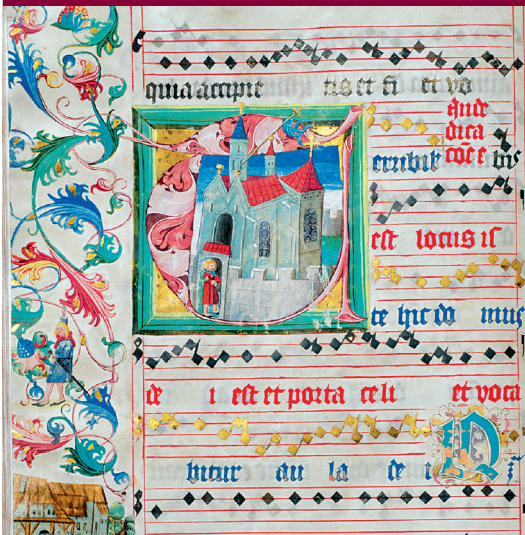 quia accipie tis et fi et vo
dica
T erribi lis
est locus is
te hic do mus
de i est et porta celi et voca
bitur au la de i